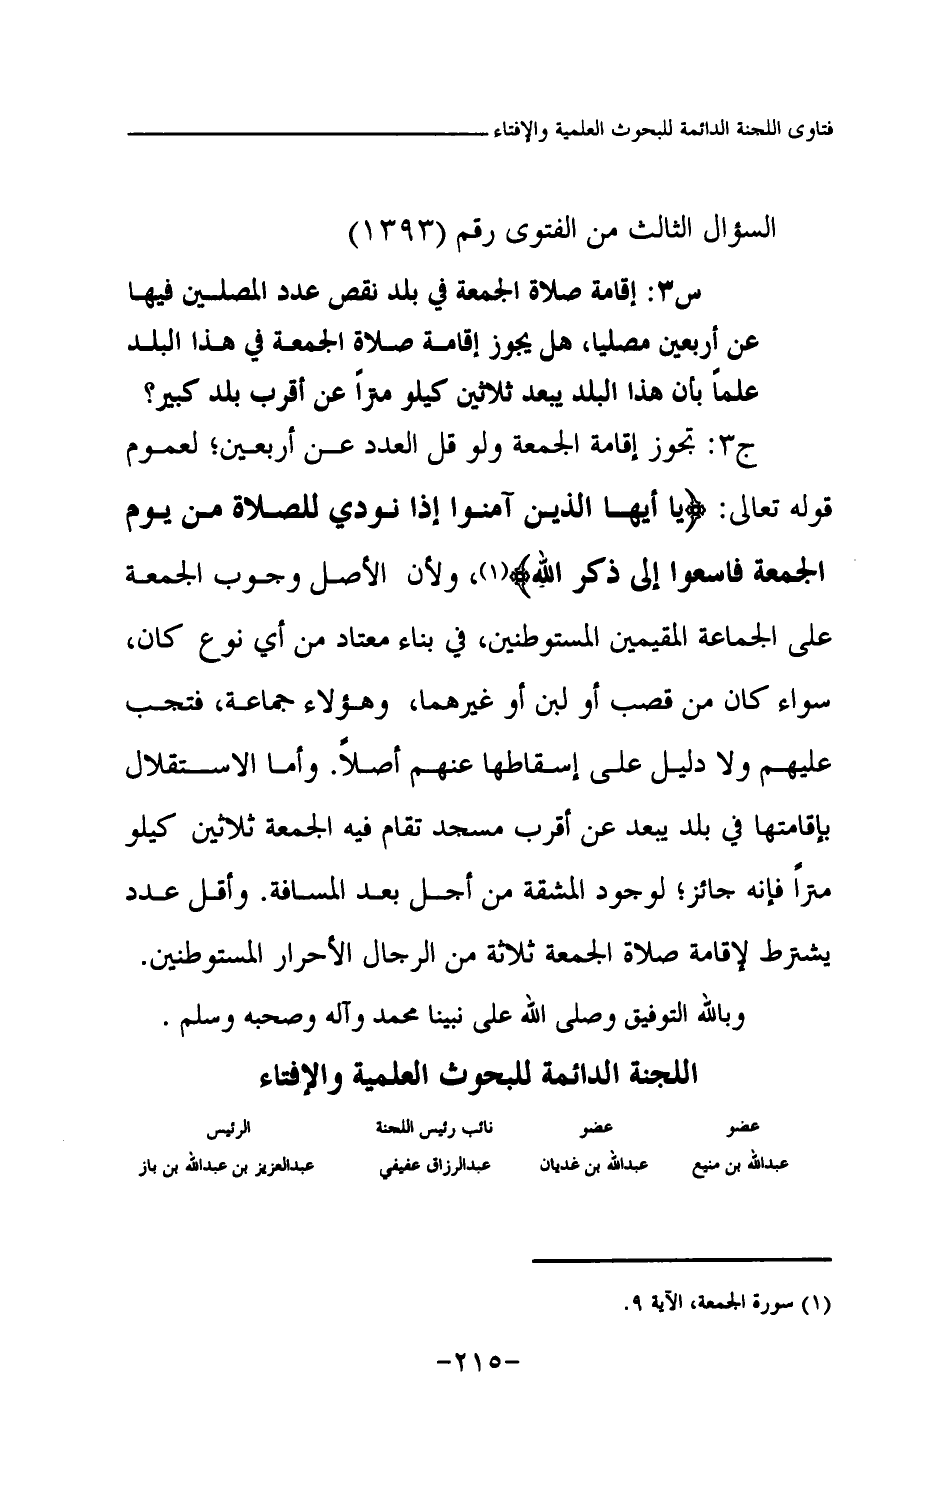 فتاوى اللجنة الدائمة للبحوث العلمية والإفتاء
السؤال الثالث من الفتوى رقم (١٣٩٣)
س٣: إقامة صلاة الجمعة في بلد نقص عدد المصلين فيها
عن أربعين مصليا، هل يجوز إقامة صلاة الجمعة في هذا البلد
علماً بأن هذا البلد يبعد ثلاثين كيلو متراً عن أقرب بلد كبير؟
ج٣: تجوز إقامة الجمعة ولو قل العدد عن أربعين؛ لعموم
قوله تعالى: ﴿يا أيها الذين آمنوا إذا نودي للصلاة من يوم
الجمعة فاسعوا إلى ذكر الله﴾(١)، ولأن الأصل وجوب الجمعة
على الجماعة المقيمين المستوطنين، في بناء معتاد من أي نوع كان،
سواء كان من قصب أو لبن أو غيرهما، وهؤلاء جماعة، فتجب
عليهم ولا دليل على إسقاطها عنهم أصلاً. وأما الاستقلال
بإقامتها في بلد يبعد عن أقرب مسجد تقام فيه الجمعة ثلاثين كيلو
متراً فإنه جائز؛ لوجود المشقة من أجل بعد المسافة. وأقل عدد
يشترط لإقامة صلاة الجمعة ثلاثة من الرجال الأحرار المستوطنين.
وبالله التوفيق وصلى الله على نبينا محمد وآله وصحبه وسلم .
اللجنة الدائمة للبحوث العلمية والإفتاء
عضو عضو نائب رئيس اللجنة الرئيس
عبدالله بن منيع عبدالله بن غديان عبدالرزاق عفيفي عبدالعزيز بن عبدالله بن باز
(١) سورة الجمعة، الآية ٩.
-٢١٥-